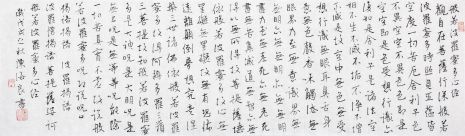 般若波羅蜜多心經
觀自在菩薩行深般若
波羅蜜多時照見五蘊皆
空度一切苦厄舍利子色
不異空空不異色色即是
空空即是色受想行識亦
復如是舍利子是諸法空
相不生不滅不垢不淨不增
不減是故空中無色無受
想行識無眼耳鼻舌身
意無色聲香味觸法
無眼界乃至無意識界
無無明亦無無明
盡乃至無老死亦無老死
盡無苦集滅道無智亦
無得以無所得故菩提薩埵
依般若波羅蜜多故心
無罣礙無罣礙故無有恐怖
遠離顛倒夢想究竟涅
槃三世諸佛依般若波羅
蜜多故得阿耨多羅三藐
三菩提故知般若波羅蜜
多是大神咒是大明咒是
無上咒是無等等咒能除
一切苦真實不虛故說般
若波羅蜜多咒即說咒曰
揭諦揭諦 波羅揭諦
波羅僧揭諦 菩提薩婆訶
般若波羅蜜多心經